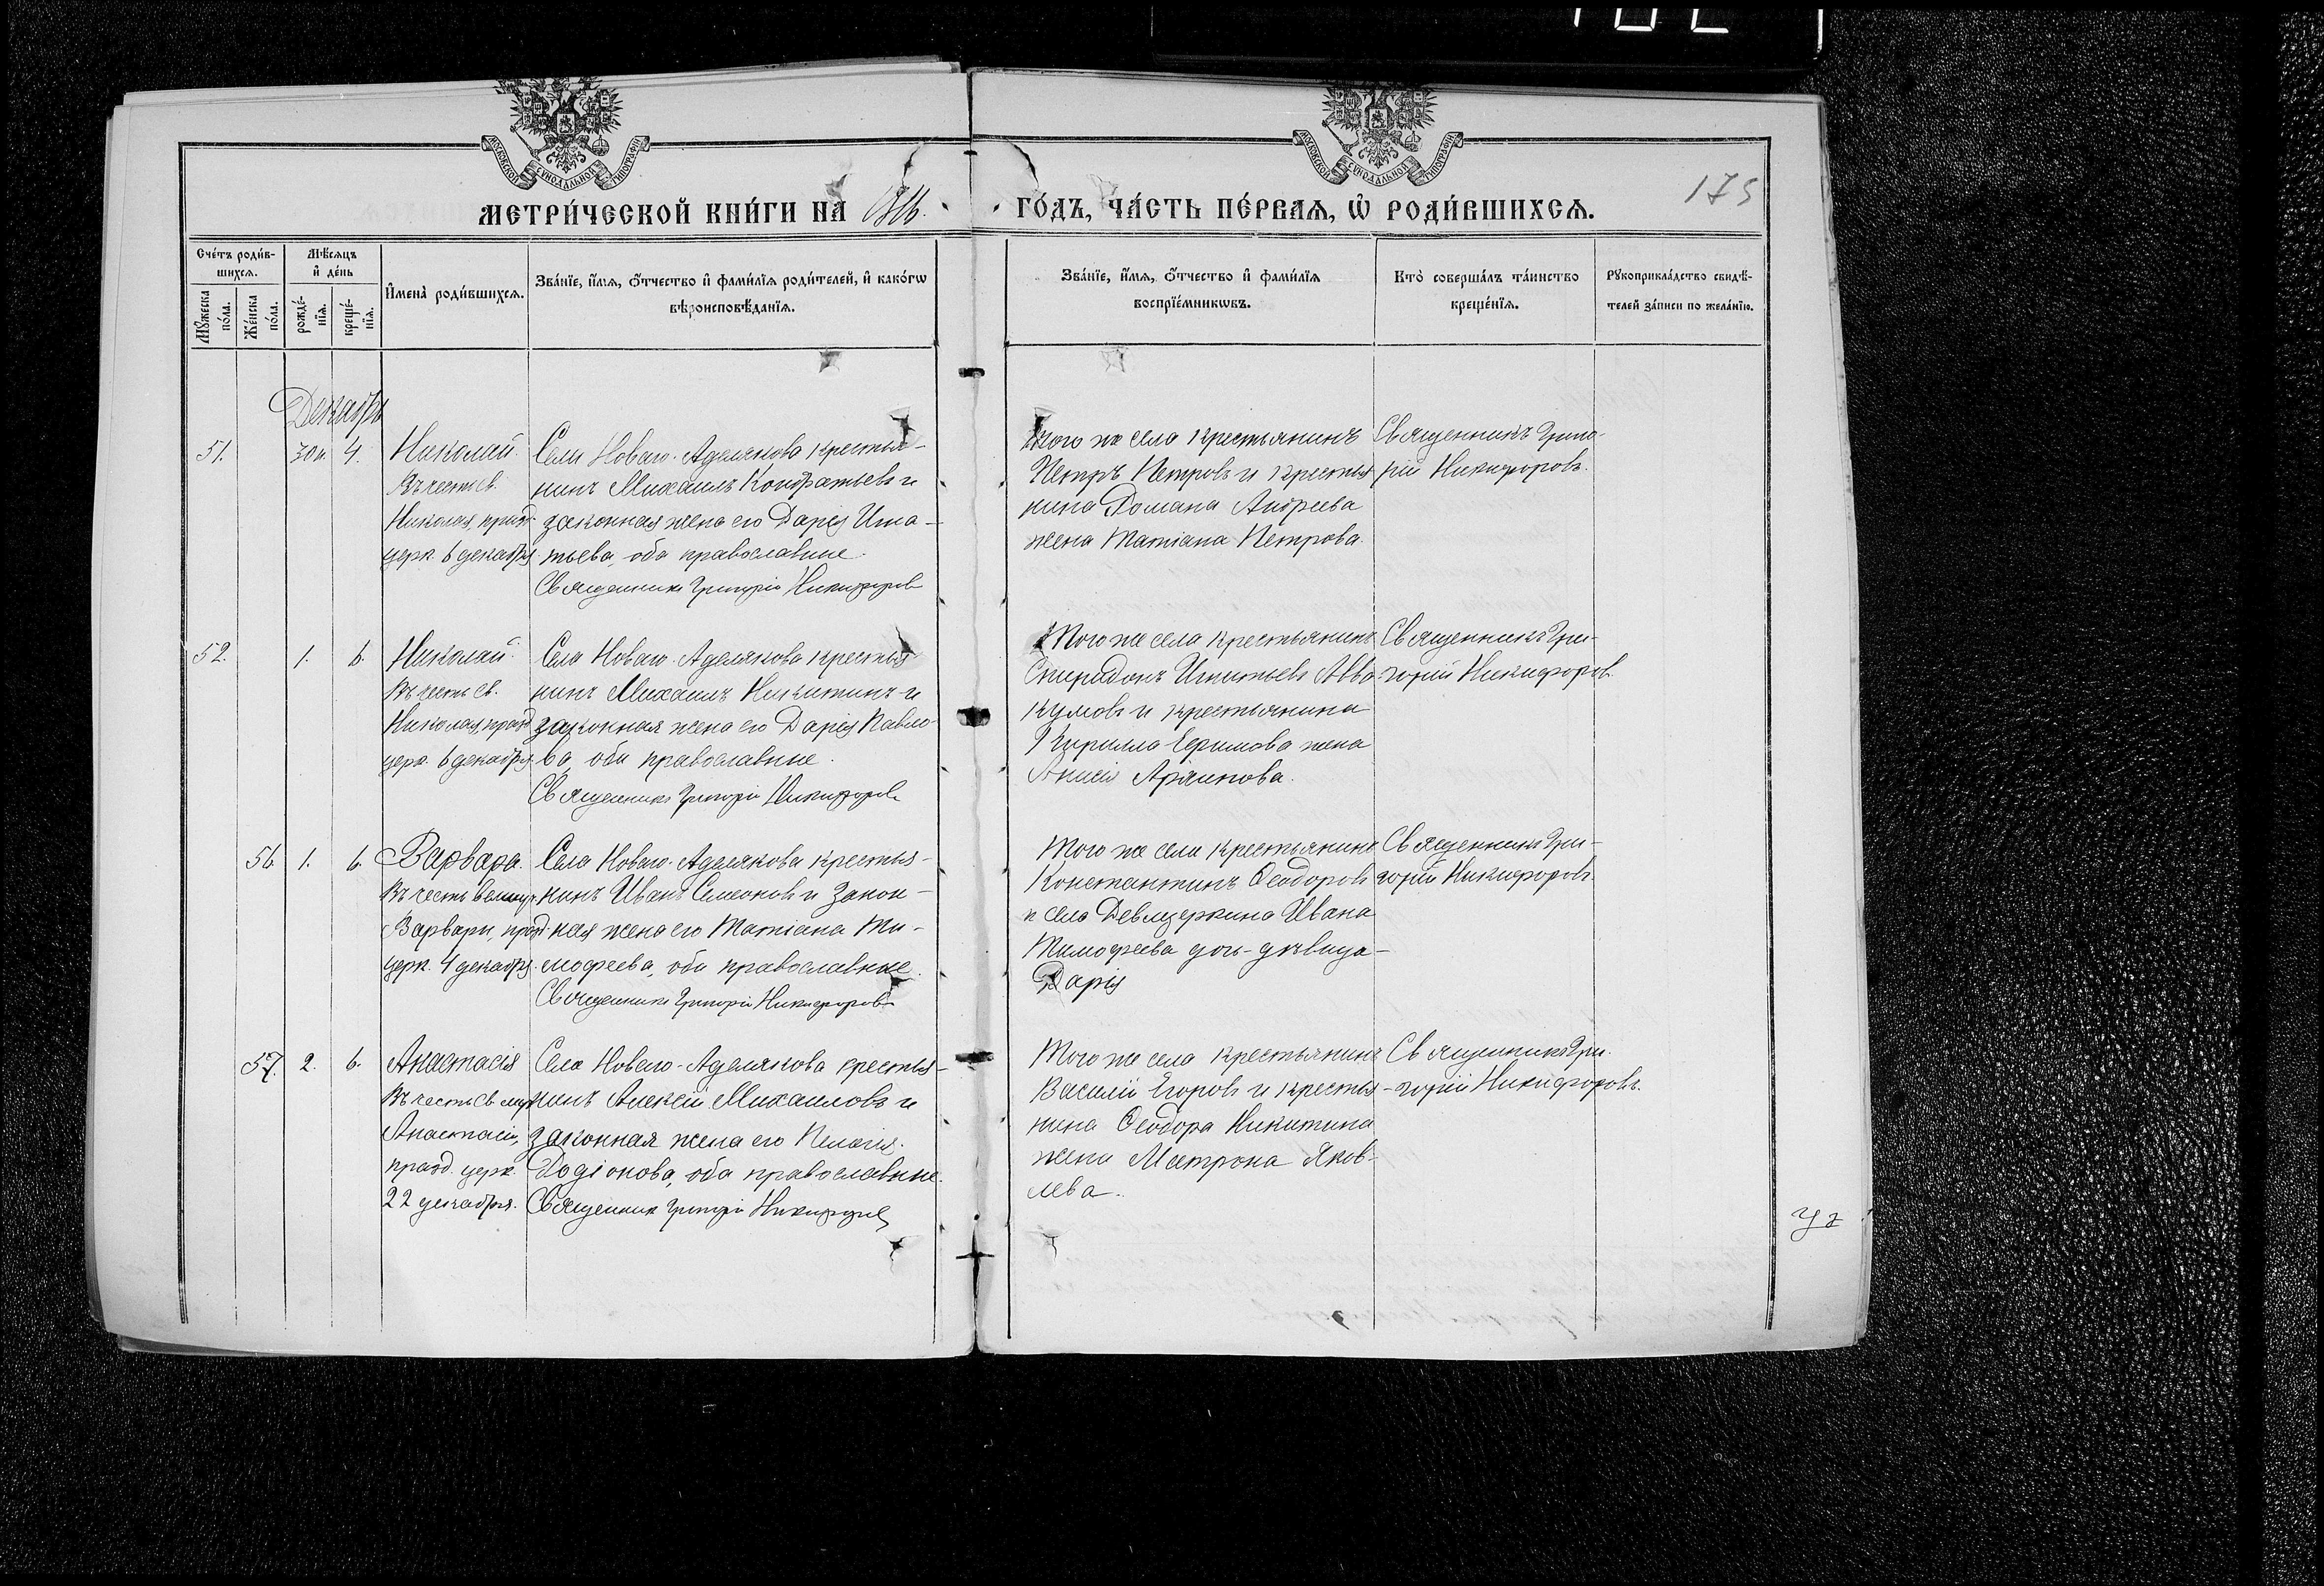 МЕТРИ́ЧЕСКОЙ КНИ́ГИ НА 1916.
ГО́ДЪ, ЧА́СТЬ ПЕ́РВАЯ, Ѡ РОДИ́ВШИХСЯ.
175
МОСКОВСКОЙ СѴНОДАЛЬНОЙ ТИПОГРАФІИ
МОСКОВСКОЙ СѴНОДАЛЬНОЙ ТИПОГРАФІИ
Сче́тъ роди́в-
шихся.
Мѣ́сяцъ
и҆ де́нь
Мꙋ́жеска
по́ла.
Же́нска
по́ла.
рожде́-
нїя.
креще́-
нїя.
И҆мена̀ роди́вшихся.
Зва́нїе, и҆́мя, ѻ҆́тчество и҆ фами́лїя роди́телей, и҆ како́гѡ
вѣроисповѣ́данїя.
Зва́нїе, и҆́мя, ѻ҆́тчество и҆ фами́лїя
воспрїе́мникѡвъ.
Кто̀ соверша́лъ та́инство
креще́нїя.
Рꙋкоприкла́дство свидѣ́-
телей за́писи по жела́нїю.
Декабрь
51. 30 н. 4.
Николай.
Въ честь св.
Николая, празд.
церк. 6 декабря
Села Новаго-Аделякова крестья-
нинъ Михаилъ Кондратьевъ и
законная жена его Дарія Игна-
тьева, оба православные.
Священникъ Григорій Никифоровъ
Того же села крестьянинъ
Петръ Петровъ и крестья-
нина Романа Андреева
жена Татіана Петрова.
Священникъ Григо-
рій Никифоровъ.
52. 1. 6.
Николай.
Въ честь св.
Николая, празд.
церк. 6 декабря
Села Новаго-Аделякова крестья-
нинъ Михаилъ Никитинъ и
законная жена его Дарія Павло-
ва, оба православные.
Священникъ Григорій Никифоровъ
Того же села крестьянинъ
Спиридонъ Игнатьевъ Авва-
кумовъ и крестьянина
Кирилла Ефимова жена
Анисія
Священникъ Гри-
горій Никифоровъ.
56. 1. 6.
Варвара.
Въ честь великмуч.
Варвары, празд.
церк. 4 декабря.
Села Новаго-Аделякова крестья-
нинъ Иванъ Семеоновъ и закон-
ная жена его Татіана Ти-
мофеева, оба православные.
Священникъ Григорій Никифоровъ
Того же села крестьянинъ
Константинъ Ѳеодоровъ
и села Девлезеркина Ивана
Тимофеева дочь-дѣвица-
Дарія
Священникъ Гри-
горій Никифоровъ.
57. 2. 6.
Анастасія
Въ честь св. муч.
Анастасіи,
празд. церк.
22 декабря.
Села Новаго-Аделякова крестья-
нинъ Алексій Михаиловъ и
законная жена его Пелагія
Родіонова, оба православные.
Священникъ Григорій Никифоровъ
Того же села крестьянинъ
Василій Егоровъ и крестья-
нина Ѳеодора Никитина
жена Матрона Яков-
лева.
Священникъ Гри-
горій Никифоровъ.